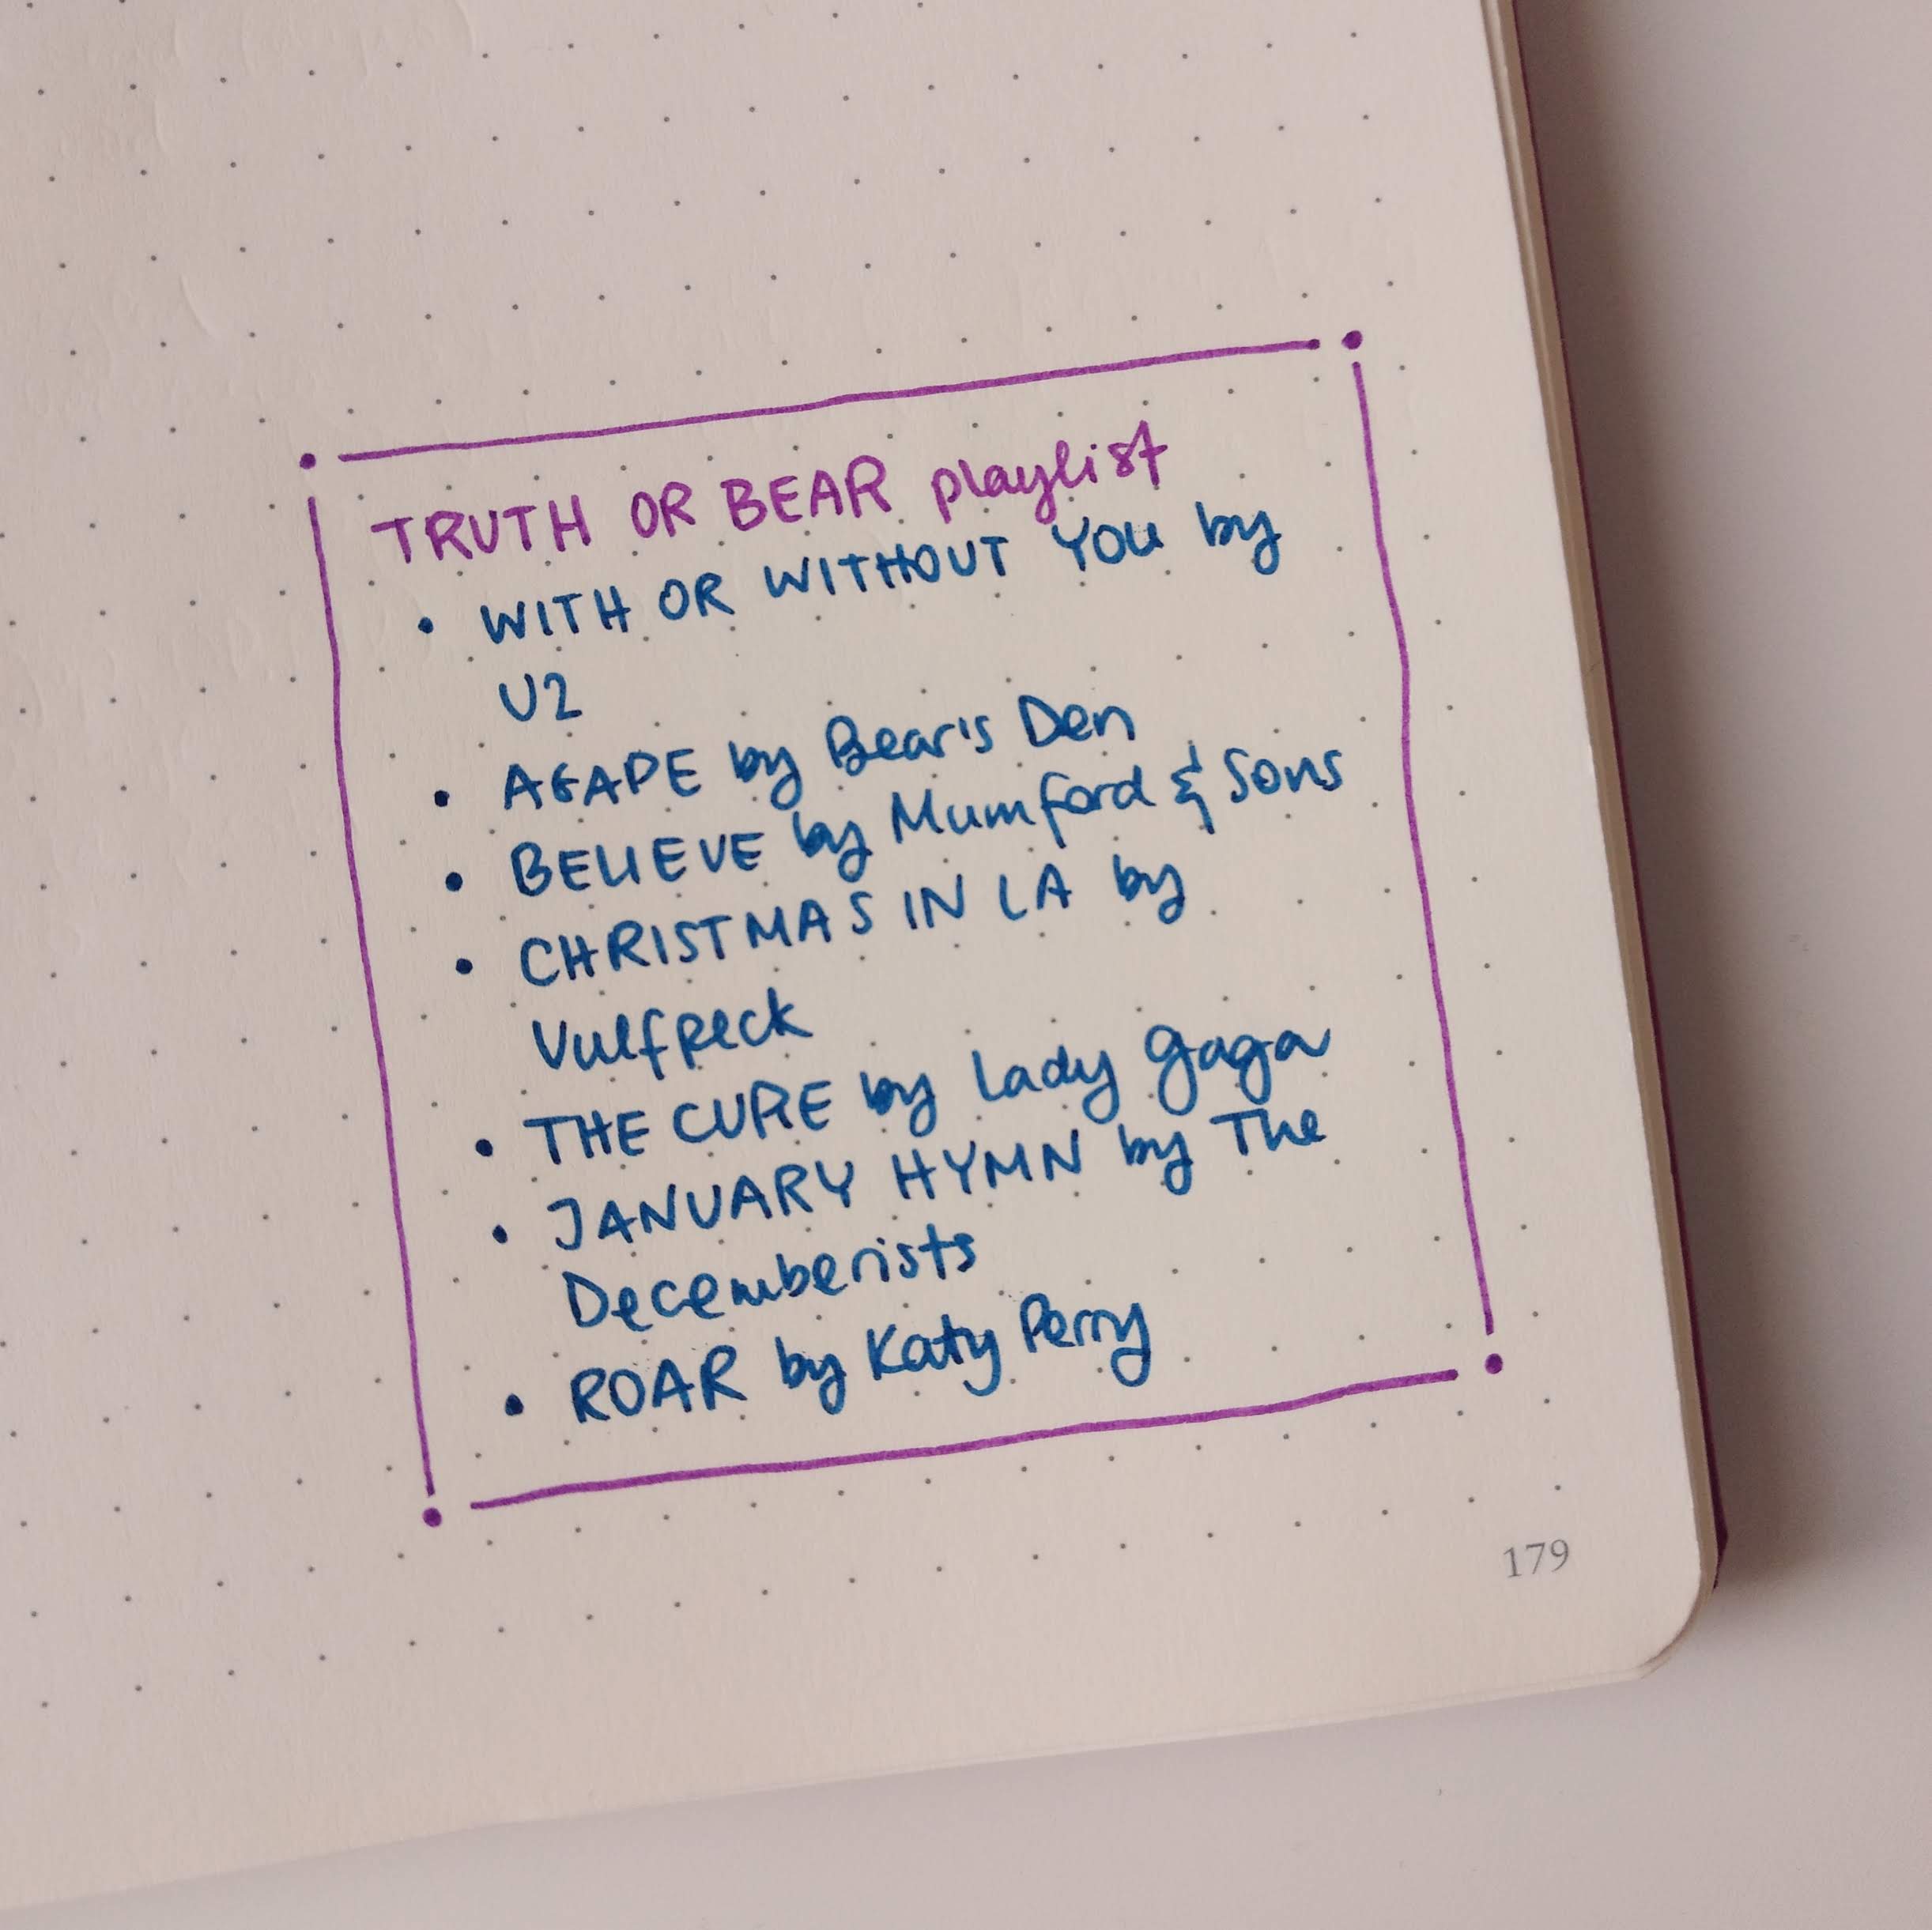 TRUTH OR BEAR playlist
• WITH OR WITHOUT YOU by
U2
• AGAPE by Bear's Den
• BELIEVE by Mumford & Sons
• CHRISTMAS IN LA by
Vulfpeck
• THE CURE by Lady Gaga
• JANUARY HYMN by The
Decemberists
• ROAR by Katy Perry
179